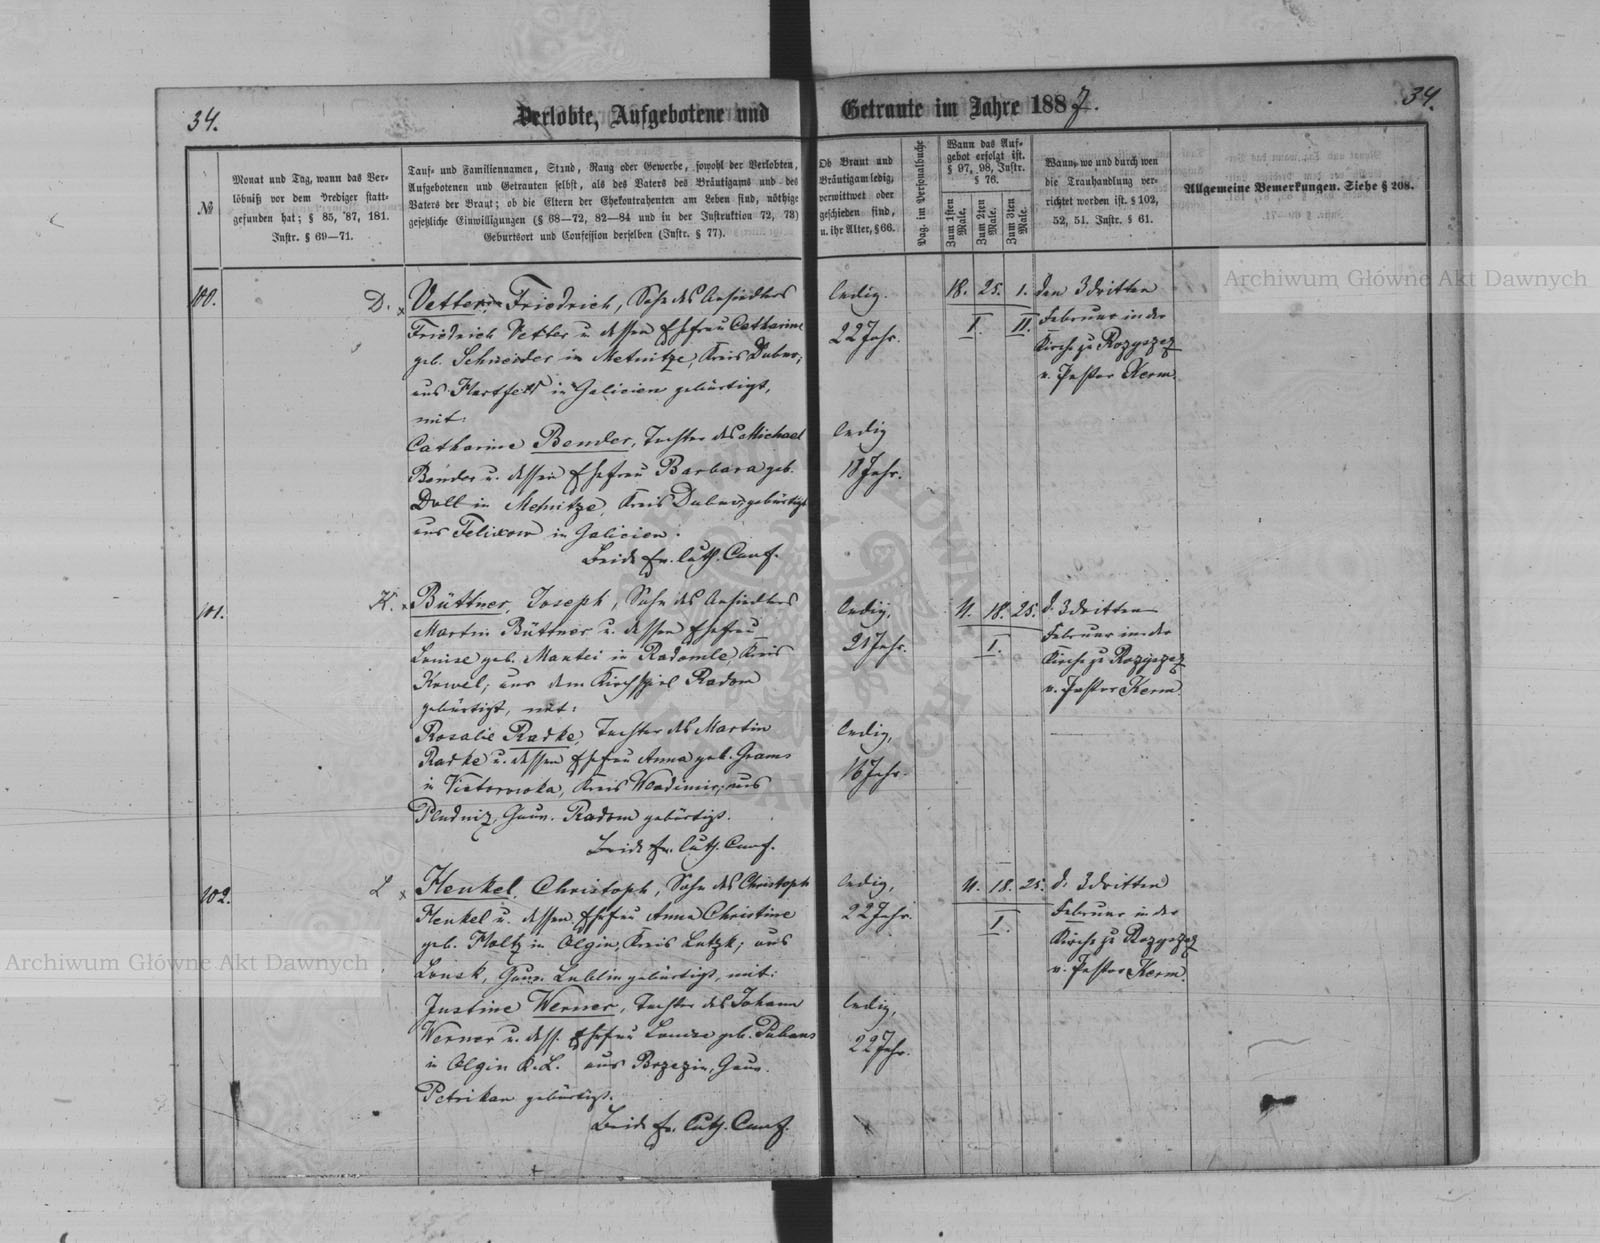 34.
Verlobte, Aufgebotene und Getraute im Jahre 1887.
34.
№
Monat und Tag, wann das Ver-
löbniß vor dem Prediger statt-
gefunden hat; § 85, 87, 181.
Instr. § 69—71.
Tauf- und Familiennamen, Stand, Rang oder Gewerbe, sowohl der Verlobten,
Aufgebotenen und Getrauten selbst, als des Vaters des Bräutigams und des
Vaters der Braut; ob die Eltern der Ehekontrahenten am Leben sind, nöthige
gesetzliche Einwilligungen (§ 68—72, 82—84 und in der Instruktion 72, 73)
Geburtsort und Confession derselben (Instr. § 77).
Ob Braut und
Bräutigam ledig,
verwittwet oder
geschieden sind,
u. ihr Alter, § 66.
Pag. im Personalbuche
Wann das Auf-
gebot erfolgt ist.
§ 97, 98, Instr.
§ 76.
Zum 1sten Male.
Zum 2ten Male.
Zum 3ten Male.
Wann, wo und durch wen
die Trauhandlung ver-
richtet worden ist. § 102,
52, 51. Instr. § 61.
Allgemeine Bemerkungen. Siehe § 208.
100.
D. x Vetter, Friedrich, Sohn des Ansiedlers
Friedrich Vetter u. dessen Ehefrau Catharine
geb. Schneider in Metnitze, Kreis Dubno;
aus Hartfeld in Galicien gebürtigt,
mit:
Catharine Bender, Tochter des Michael
Bender u. dessen Ehefrau Barbara geb.
Doll in Metnitze, Kreis Dubno, gebürtigt
aus Felixow in Galicien.
Beide ev. luth. Conf.
ledig.
22 Jahr.
ledig
18 Jahr.
18. 25. 1.
I. II.
den 3 dritten
Februar in der
Kirche zu Rozyszcz
v. Pastor Kerm.
101.
K. x Büttner, Joseph, Sohn des Ansiedlers
Martin Büttner u. dessen Ehefrau
Louise geb. Mantei in Radomle, Kreis
Kowel; aus dem Kirchspiel Radom
gebürtigt, mit:
Rosalie Radke, Tochter des Martin
Radke u. dessen Ehefrau Anna geb. Grams
in Victorowka, Kreis Wladimir; aus
Gouv. Radom gebürtigt.
Beide ev. luth. Conf.
ledig,
21 Jahr.
ledig,
16 Jahr.
11. 18. 25.
I.
d. 3 dritten
Februar in der
Kirche zu Rozyszcz
v. Pastor Kerm.
102.
L x Henkel, Christoph, Sohn des Christoph
Henkel u. dessen Ehefrau Anna Christine
geb. Holtz in Olgin, Kreis Lutzk; aus
Gouv. Lublin gebürtigt, mit:
Justine Werner, Tochter des Johann
Werner u. dess. Ehefrau Louise geb.
in Olgin K. L. aus Brzezin, Gouv.
Petrikau gebürtigt.
Beide ev. luth. Conf.
ledig,
22 Jahr.
ledig,
22 Jahr.
11. 18. 25.
I.
d. 3 dritten
Februar in der
Kirche zu Rozyszcz
v. Pastor Kerm.
Archiwum Główne Akt Dawnych
Archiwum Główne Akt Dawnych